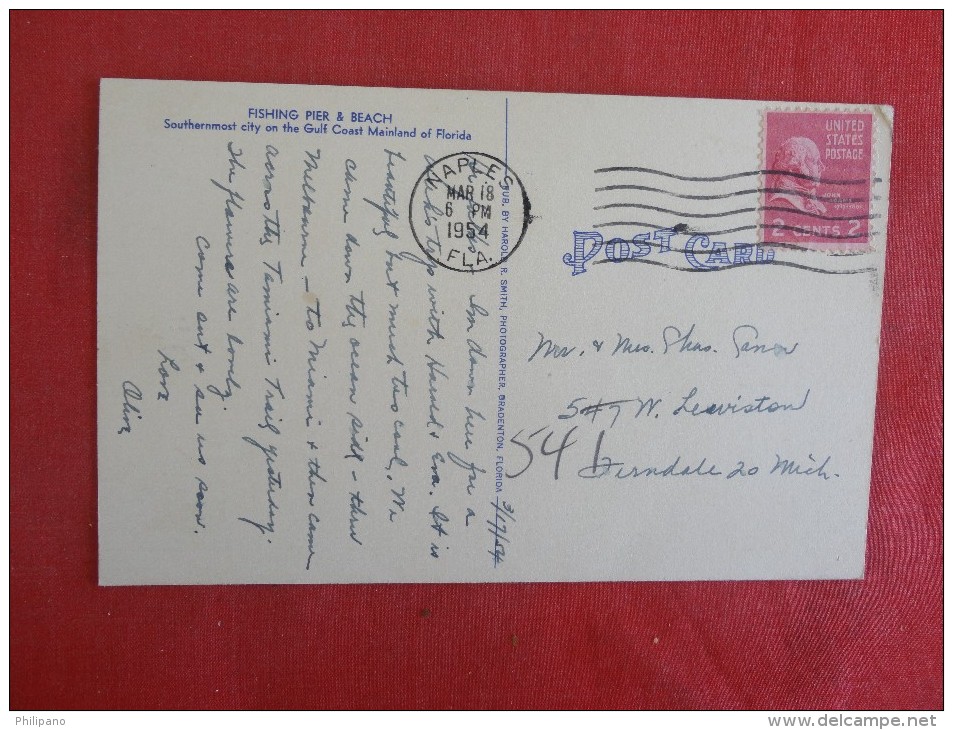 FISHING PIER & BEACH
Southernmost city on the Gulf Coast Mainland of Florida
3/17/54
I'm down here for a
trip with Harold & Eva. It is
beautiful but much too cool. We
came down the ocean side - thru
Melbourne - to Miami & then came
across the Tamiami Trail yesterday.
The flowers are lovely.
Come out & see us soon.
Love
Olive
PUB. BY HAROLD R. SMITH, PHOTOGRAPHER, BRADENTON, FLORIDA
NAPLES
MAR 18
6 PM
1954
FLA.
UNITED
STATES
POSTAGE
JOHN
ADAMS
2 CENTS 2
POST CARD
Mr. & Mrs. Chas.
547 W. Lewiston
541
Ferndale 20 Mich.
Philipano
www.delcampe.net